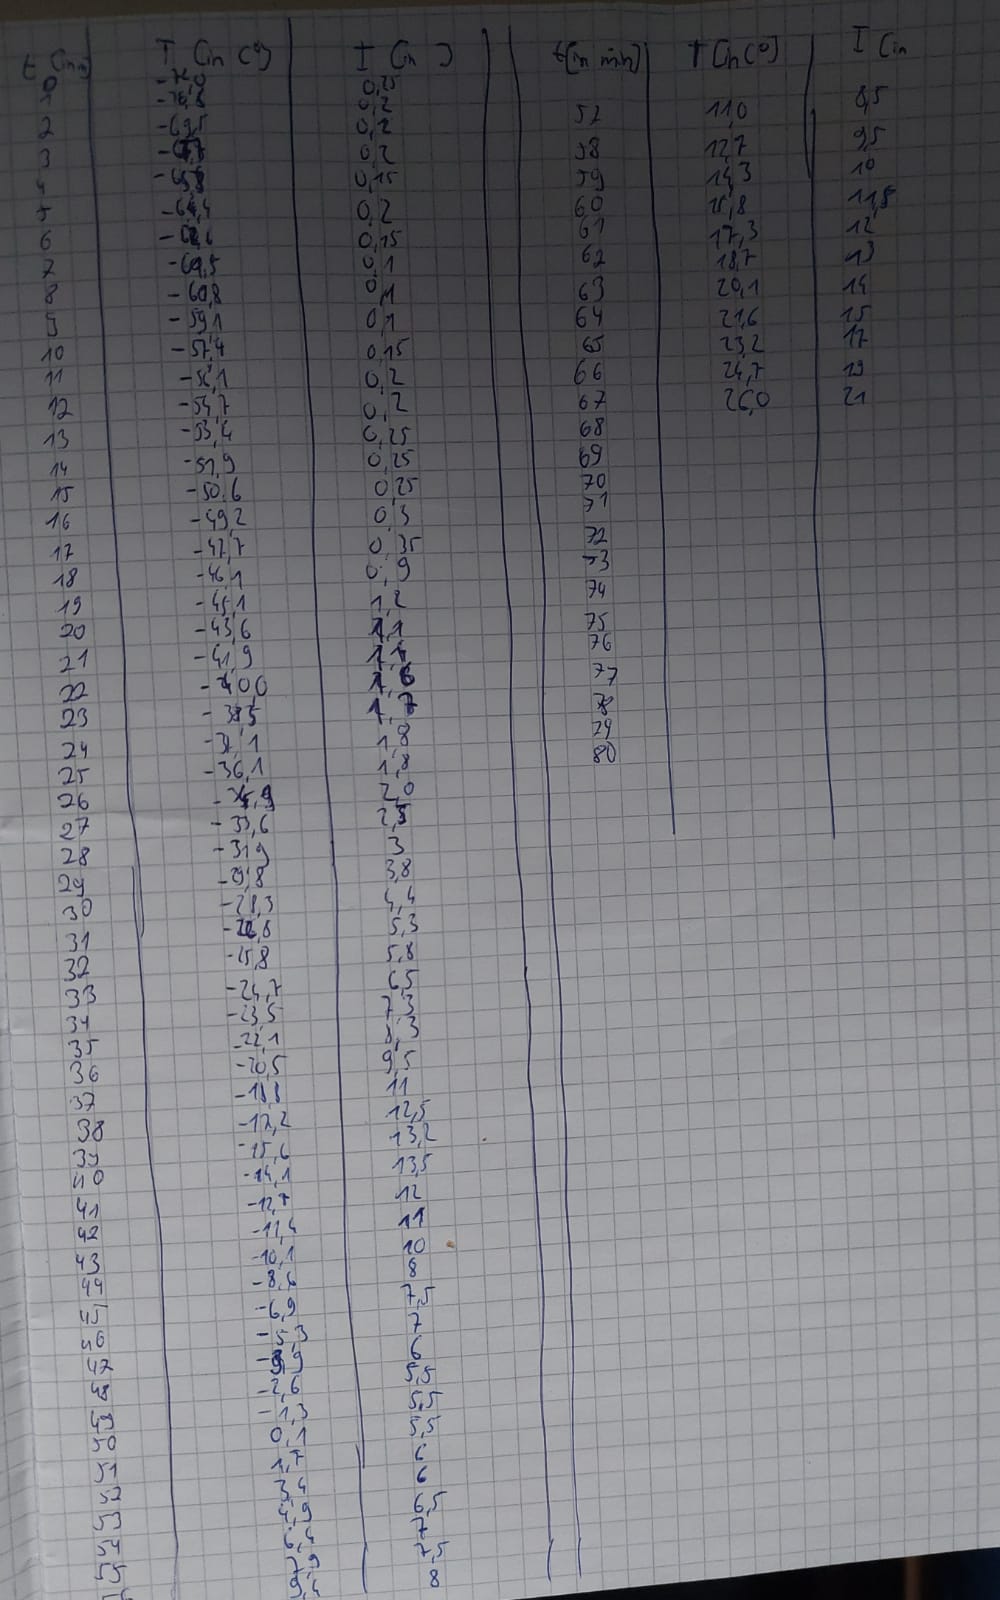 t (in T (in C°) I (in )
0 0,25
-76,8 0,2
2 -69,5 0,2
3 0,2
4 0,15
5 -64,4 0,2
6 0,15
7 0,1
8 -60,8 0,1
9 -59,1 0,1
10 -57,4 0,15
11 -56,1 0,2
12 -54,7 0,2
13 -53,4 0,25
14 -51,9 0,25
15 -50,6 0,25
16 -49,2 0,3
17 -47,7 0,35
18 -46,1 0,9
19 -45,1 1,2
20 -43,6 1,1
21 -41,9 1,4
22 -40,0 1,6
23 -38,5 1,7
24 -37,1 1,8
25 -36,1 1,8
26 2,0
27 -33,6 2,5
28 -31,9 3
29 -29,8 3,8
30 -28,3 4,4
31 -26,8 5,3
32 -25,8 5,8
33 -24,7 6,5
34 -23,5 7,3
35 -22,1 8,3
36 -20,5 9,5
37 -18,8 11
38 -17,2 12,5
39 -15,6 13,2
40 -14,1 13,5
41 -12,7 12
42 -11,4 11
43 -10,1 10
44 -8,6 8
45 -6,9 7,5
46 -5,3 7
47 -3,9 6
48 -2,6 5,5
49 -1,3 5,5
50 0,1 5,5
51 1,7 6
52 3,4 6
53 4,9 6,5
54 6,4 7
55 7,9 7,5
9,4 8
t (in min) T (in C°) I (in
57 11,0 8,5
58 12,7 9,5
59 14,3 10
60 15,8 11,5
61 17,3 12
62 18,7 13
63 20,1 14
64 21,6 15
65 23,2 17
66 24,7 19
67 26,0 21
68
69
70
71
72
73
74
75
76
77
78
79
80